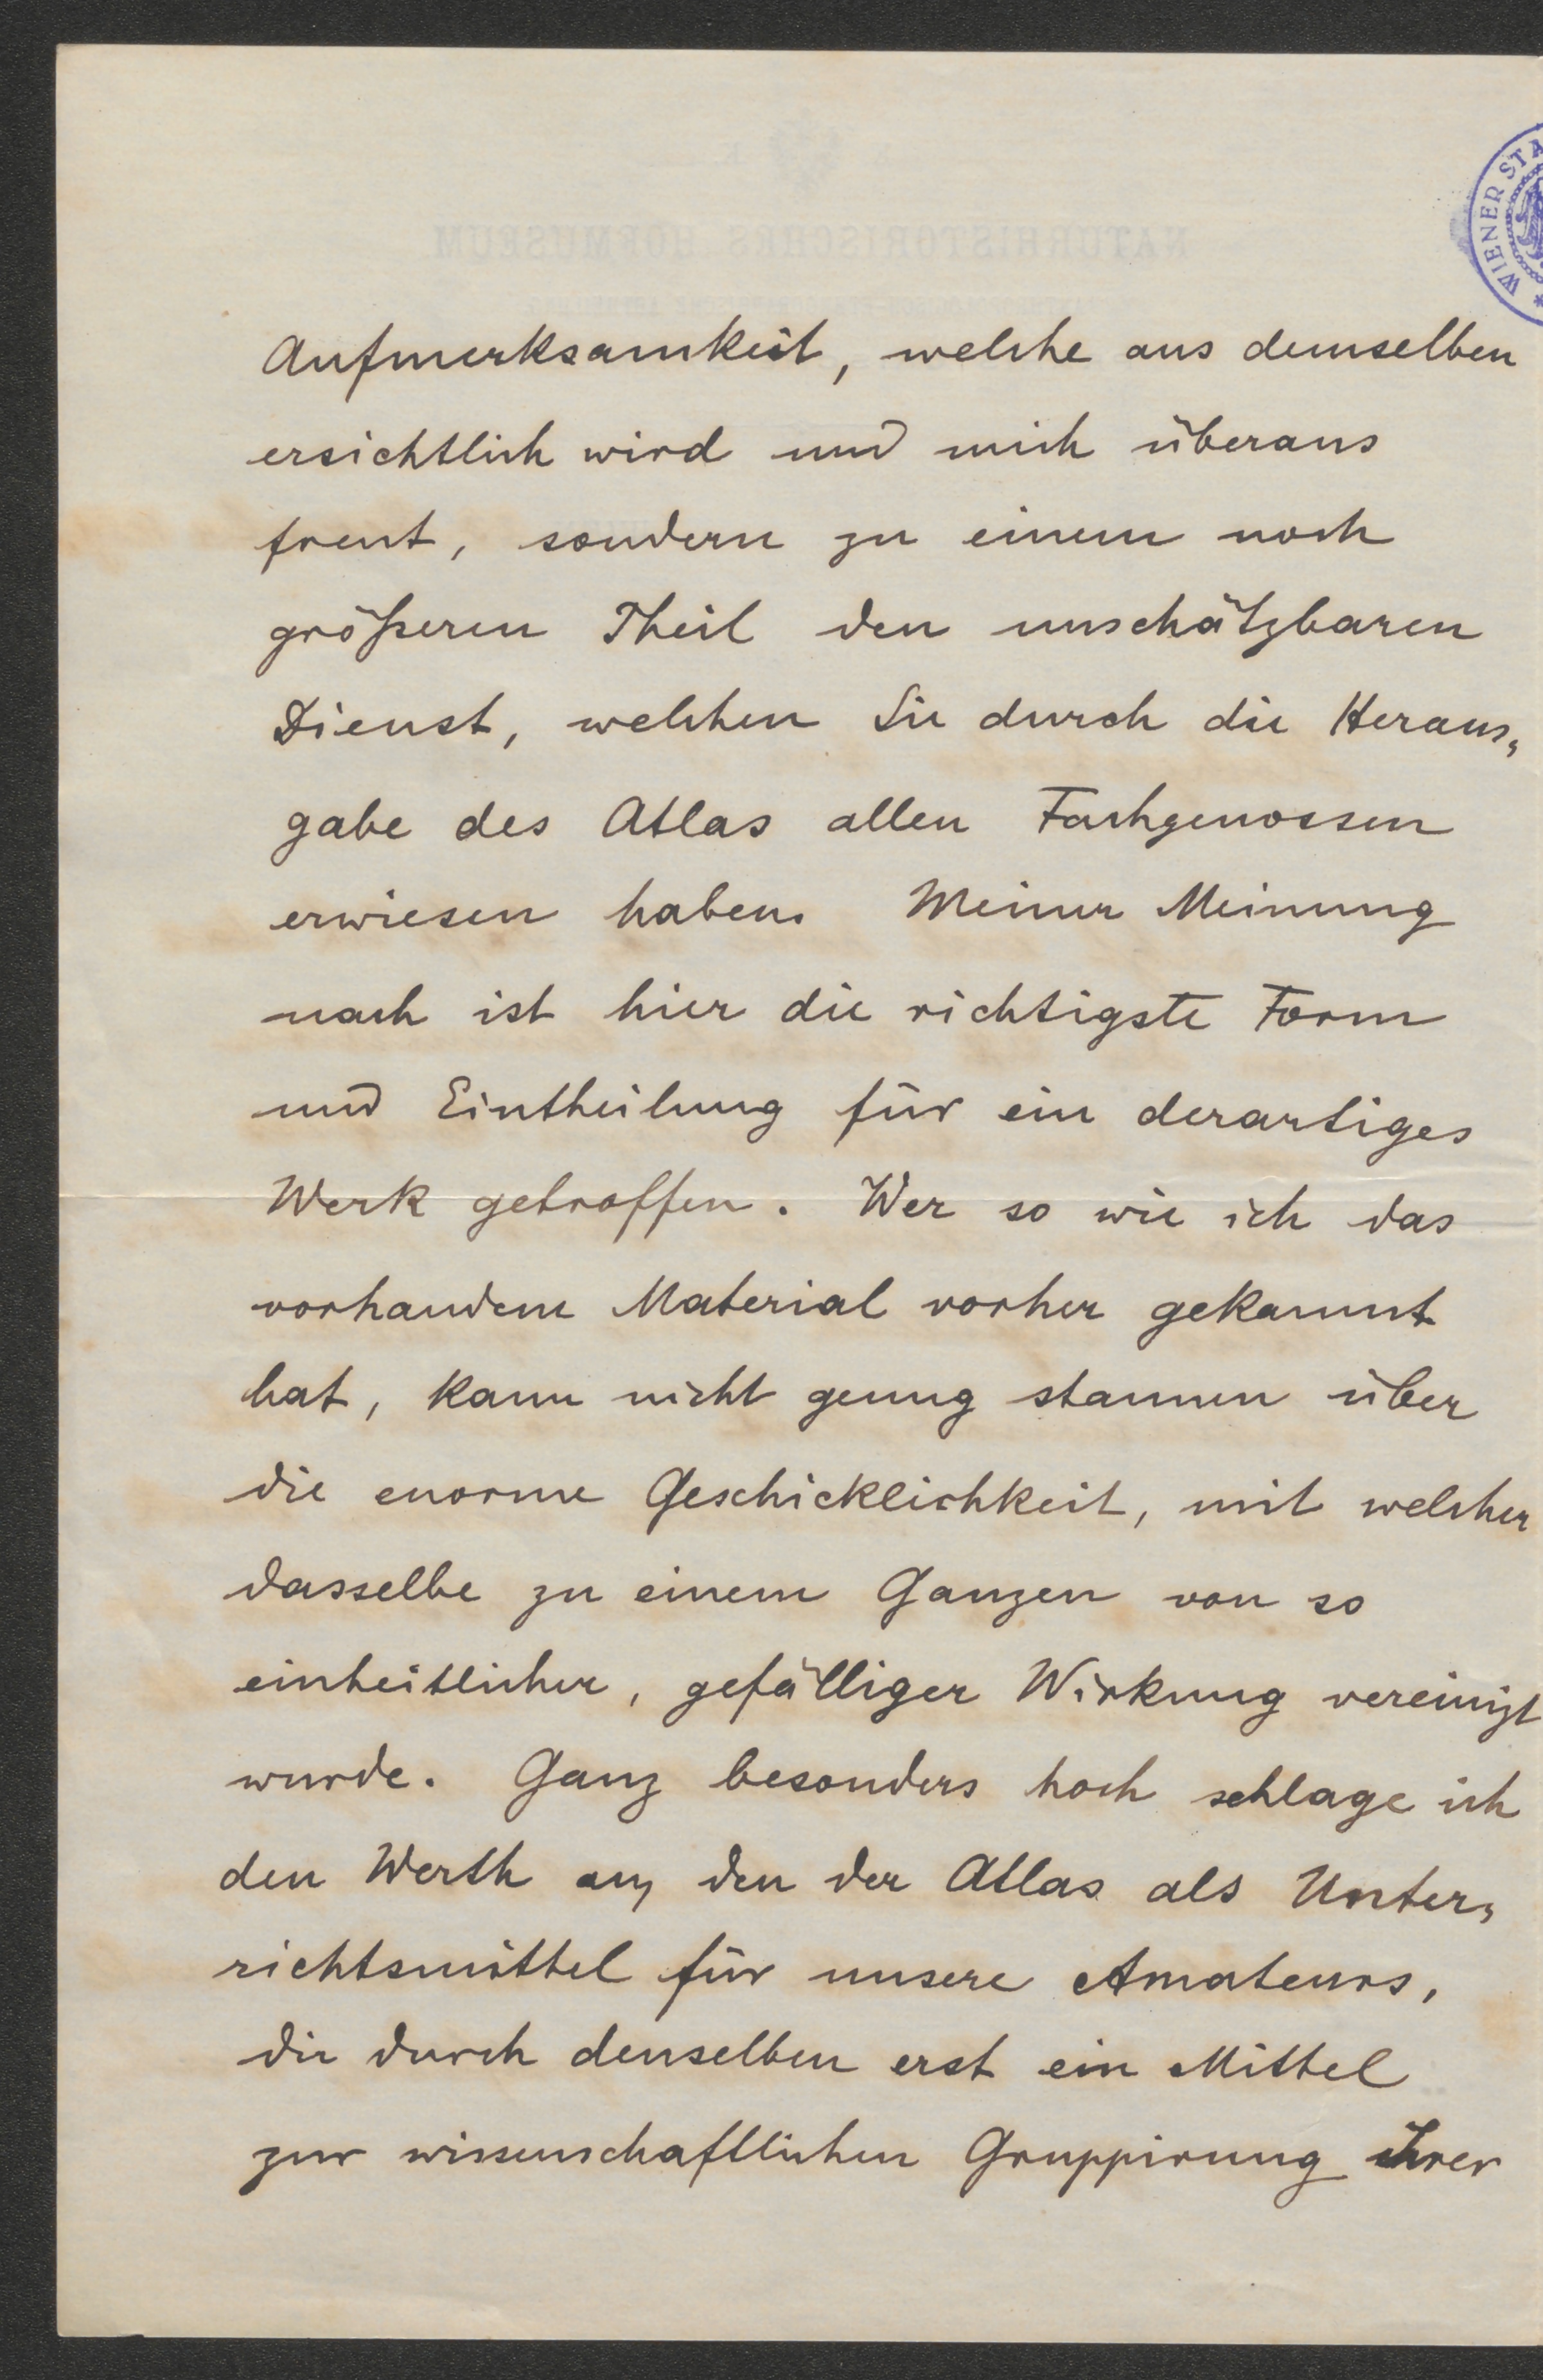 WIENER STA
Aufmerksamkeit, welche aus demselben
ersichtlich wird und mich überaus
freut, sondern zu einem noch
größeren Theil den unschätzbaren
Dienst, welchen Sie durch die Heraus„
gabe des Atlas allen Fachgenossen
erwiesen haben. Meiner Meinung
nach ist hier die richtigste Form
und Eintheilung für ein derartiges
Werk getroffen. Wer so wie ich das
vorhandene Material vorher gekannt
hat, kann nicht genug staunen über
die enorme Geschicklichkeit, mit welcher
dasselbe zu einem Ganzen von so
einheitlicher, gefälliger Wirkung vereinigt
wurde. Ganz besonders hoch schlage ich
den Werth an, den der Atlas als Unter„
richtsmittel für unsere Amateurs,
die durch denselben erst ein Mittel
zur wissenschaftlichen Gruppirung ihrer